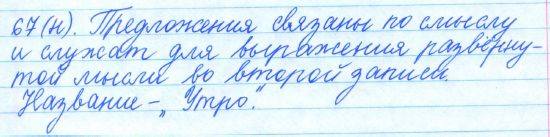 67(н). Предложения связаны по смыслу
и служат для выражения развёрну-
той мысли во второй записи.
Название – „Утро".